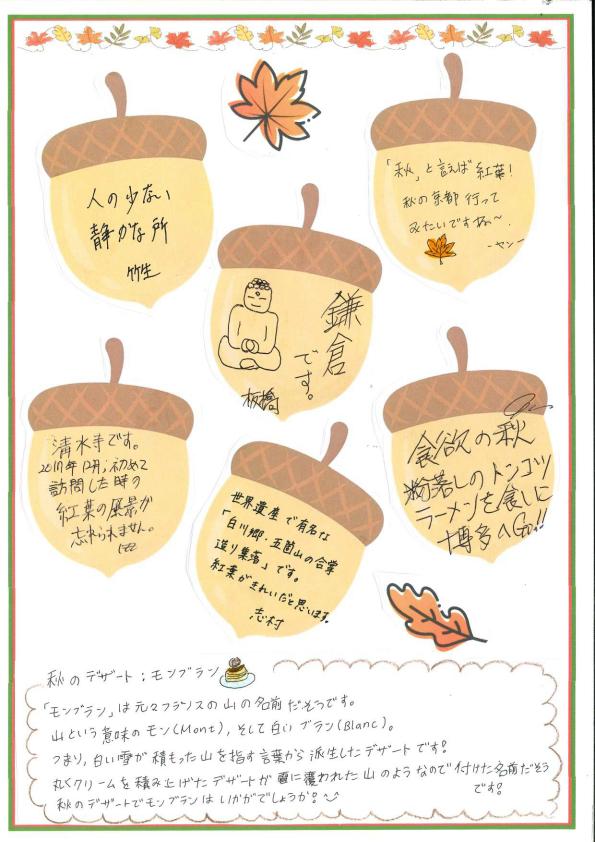 人の少ない
静かな所
竹生
「秋」と言えば紅葉!
秋の京都行って
みたいですね～。
-ヤン-
鎌倉
です。
板橋
清水寺です。
2017年12月、初めて
訪問した時の
紅葉の風景が
忘れられません。
世界遺産で有名な
「白川郷・五箇山の合掌
造り集落」です。
紅葉がきれいだと思います。
志村
食欲の秋
粉落しのトンコツ
ラーメンを食いに
博多へGo!!
秋のデザート:モンブラン
「モンブラン」は元々フランスの山の名前だそうです。
山という意味のモン(Mont)，そして白いブラン(Blanc)。
つまり，白い雪が積もった山を指す言葉から派生したデザートです!
丸くクリームを積み上げたデザートが雪に覆われた山のようなので付けた名前だそう
です!
秋のデザートでモンブランはいかがでしょうか?